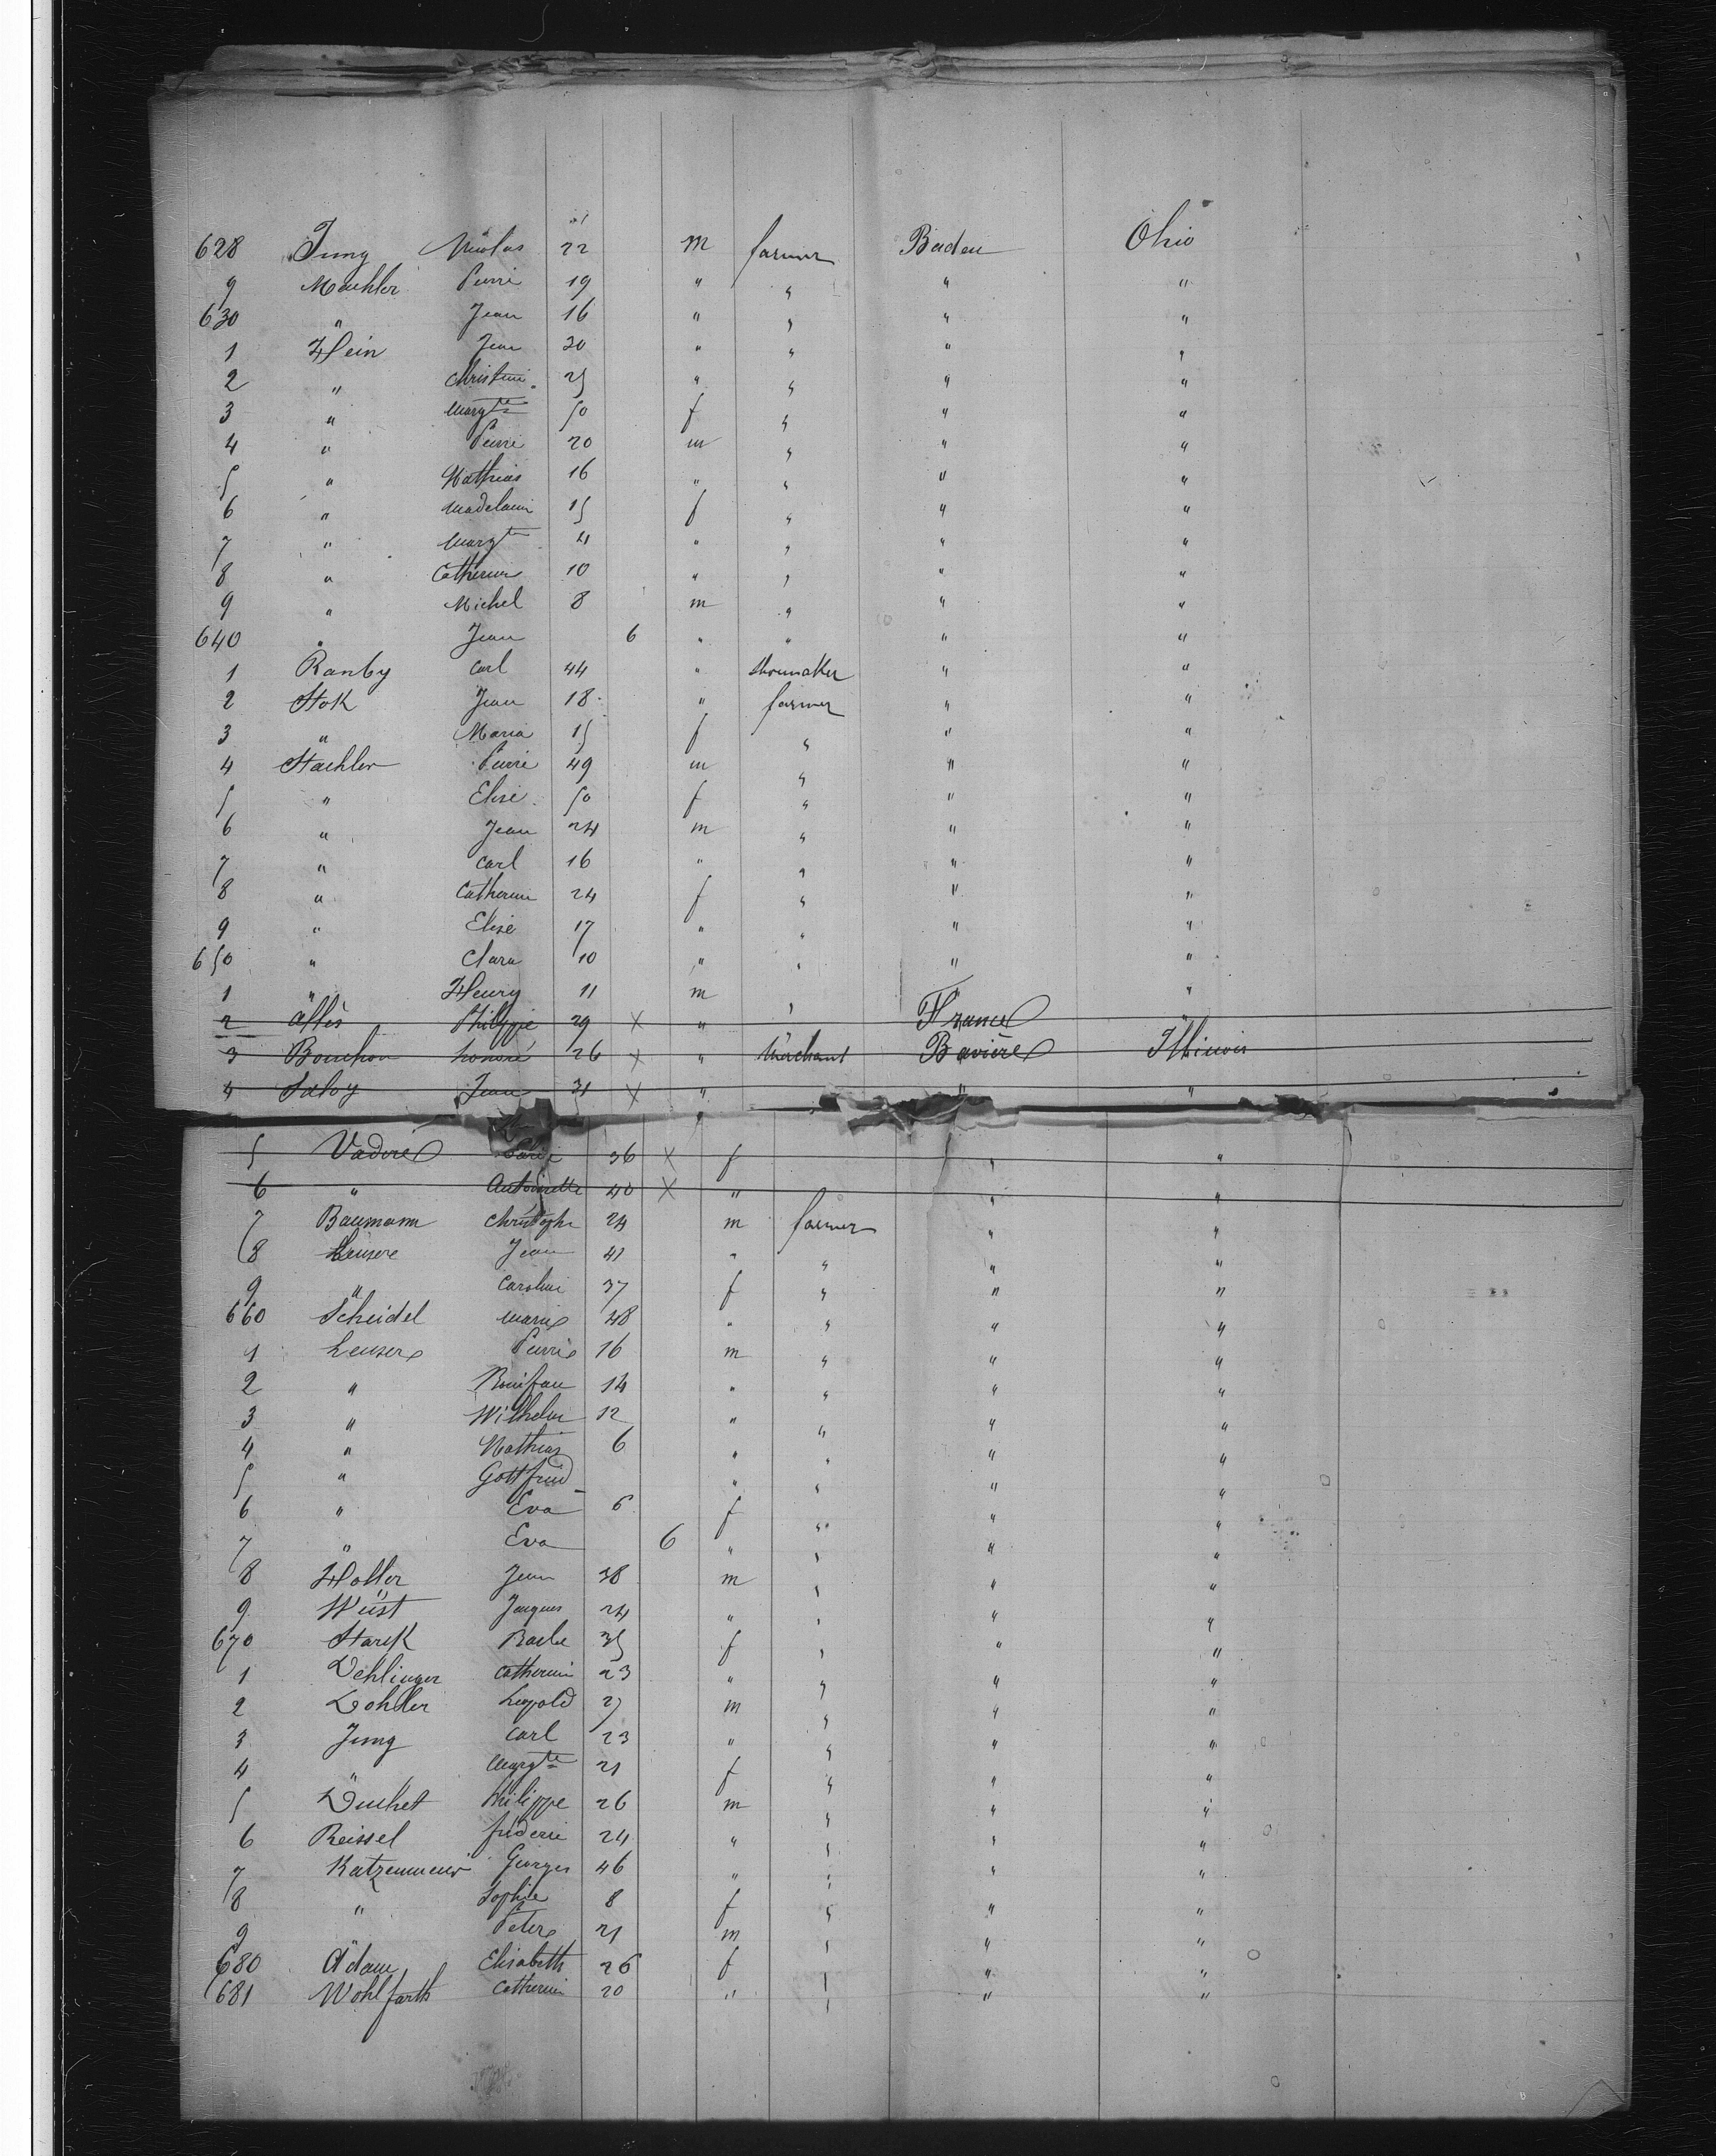 628 Jung Nicolas 22 m farmer Baden Ohio
9 Maehler Pierre 19 " " " "
630 " Jean 16 " " " "
1 Hein Jean 30 " " " "
2 " Christine 25 " " " "
3 " Margte 50 f " " "
4 " Pierre 20 m " " "
5 " Mathias 16 " " " "
6 " Madelaine 15 f " " "
7 " Margte " " " "
8 " Catherine 10 " " " "
9 " Michel 8 m " " "
640 " Jean 6 " " " "
1 Ranby Carl 44 " shoemaker " "
2 Stok Jean 18 " farmer " "
3 " Maria 15 f " " "
4 Staehler Pierre 49 m " " "
5 " Elise 50 f " " "
6 " Jean 24 m " " "
7 " Carl 16 " " " "
8 " Catherine 24 f " " "
9 " Elise 17 " " " "
650 " Clara 10 " " " "
1 " Henry 11 m " "
2 Allès Philippe 29 X " " France "
3 Bouchon honoré 26 X " Merchant Bavière Illinois
4 Saloy Jean 31 X " " "
5 Vadoré 36 X f " "
6 " Antoinette 40 X " " "
7 Baumann Christophe 24 m farmer " "
8 Leusere Jean 41 " " " "
9 " Caroline 37 f " " "
660 Scheidel Marie 48 " " " "
1 Leusere Pierre 16 m " " "
2 " Boniface 14 " " " "
3 " Wilhelm 12 " " " "
4 " Mathias 6 " " " "
5 " Gottfried " " " "
6 " Eva 6 f " " "
7 " Eva 6 " " " "
8 Holler Jean 38 m " " "
9 Wüst Jacques 24 " " " "
670 Stark Barbe 35 f " " "
1 Dehlinger Catherine 23 " " " "
2 Dohller Leopold 27 m " " "
3 Jung Carl 23 " " " "
4 " Margte 21 f " " "
5 Duchet Philippe 26 m " " "
6 Reissel frederic 24 " " " "
7 Katzenmeier Georges 46 " " " "
8 " Sophie 8 f " " "
9 Peter 21 m " " "
680 Adam Elisabeth 26 f " " "
681 Wohlfarth Catherine 20 " " " "